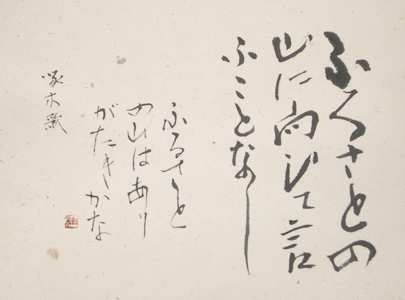 ふるさとの
山に向ひて言
ふことなし
ふるさと
の山はあり
がたきかな
啄木歌